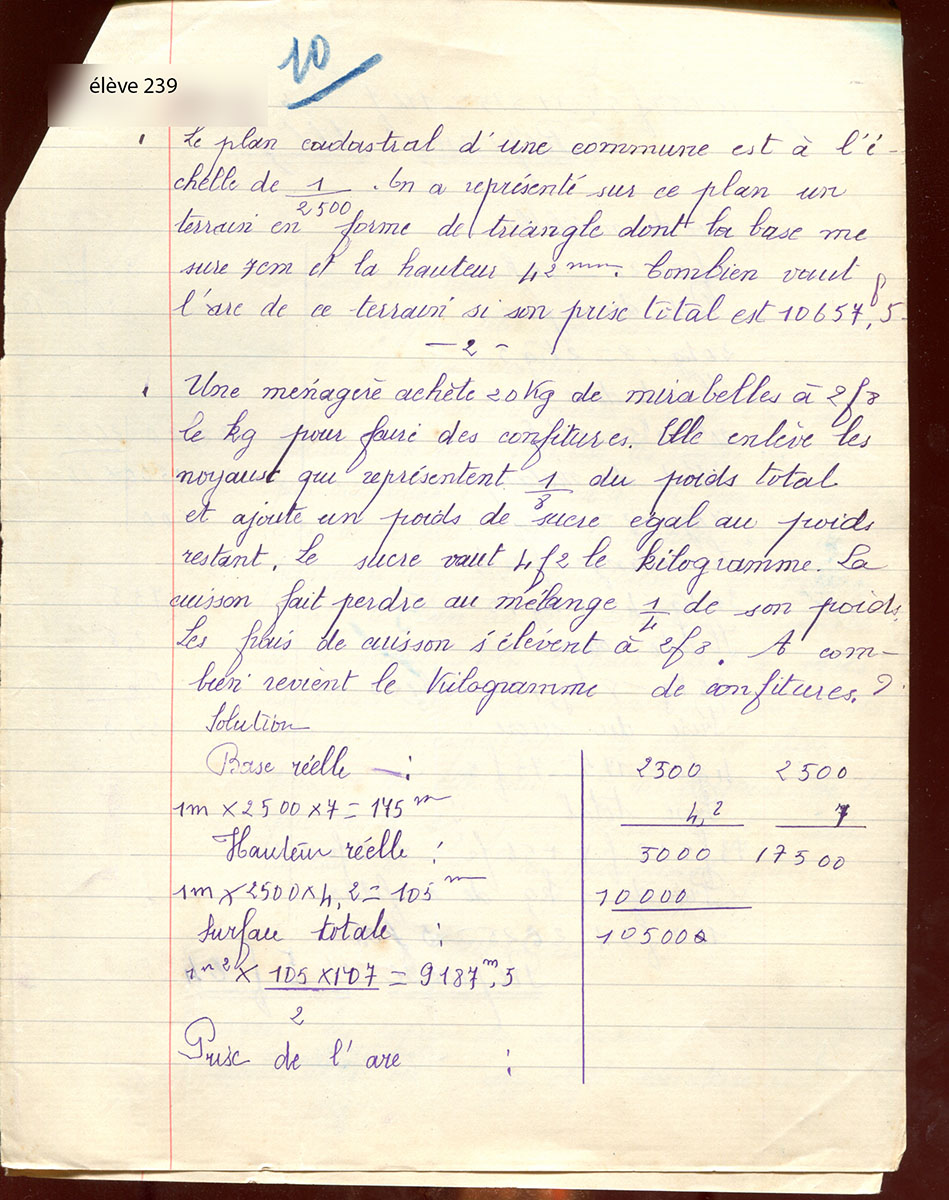 10
élève 239
Le plan cadastral d'une commune est à l'é-
chelle de 1/2500. On a représenté sur ce plan un
terrain en forme de triangle dont la base me
sure 7cm et la hauteur 42 mm. Combien vaut
l'are de ce terrain si son prisc total est 10657f,5
- 2 -
Une ménagère achète 20Kg de mirabelles à 2f8
le kg pour faire des confitures. Elle enlève les
noyausc qui représentent 1/8 du poids total
et ajoute un poids de sucre égal au poids
restant. Le sucre vaut 4f2 le kilogramme. La
cuisson fait perdre au mélange 1/4 de son poids.
Les frais de cuisson s'élèvent à 2f8. A com-
bien revient le Kilogramme de confitures.?
Solution
Base réelle : 2500 2500
1m × 2500 × 7 = 175m 4,2 7
Hauteur réelle : 5000 17500
1m × 2500 × 4,2 = 105m 10000
Surface totale : 10500
1m2 × 105 × 107 = 9187m,5
2
Prisc de l'are :